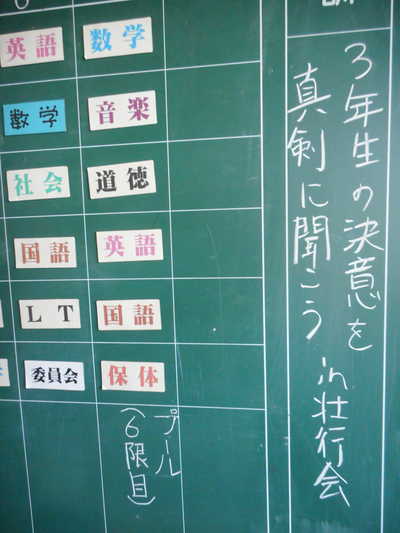 3年生の決意を
真剣に聞こう in壮行会
英語 数学
数学 音楽
社会 道徳
国語 英語
LT 国語
委員会 保体
プール
(6限目)